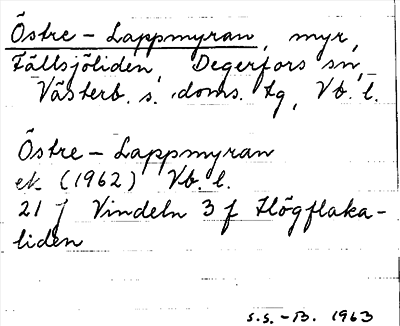 Östre-Lappmyran, myr,
Fällsjöliden, Degerfors sn,
Västerb. s. doms. tg, Vb. l.
Östre-Lappmyran
ek (1962) Vb. l.
21 J Vindeln 3 f Högflaka-
liden
S.S.-B. 1963